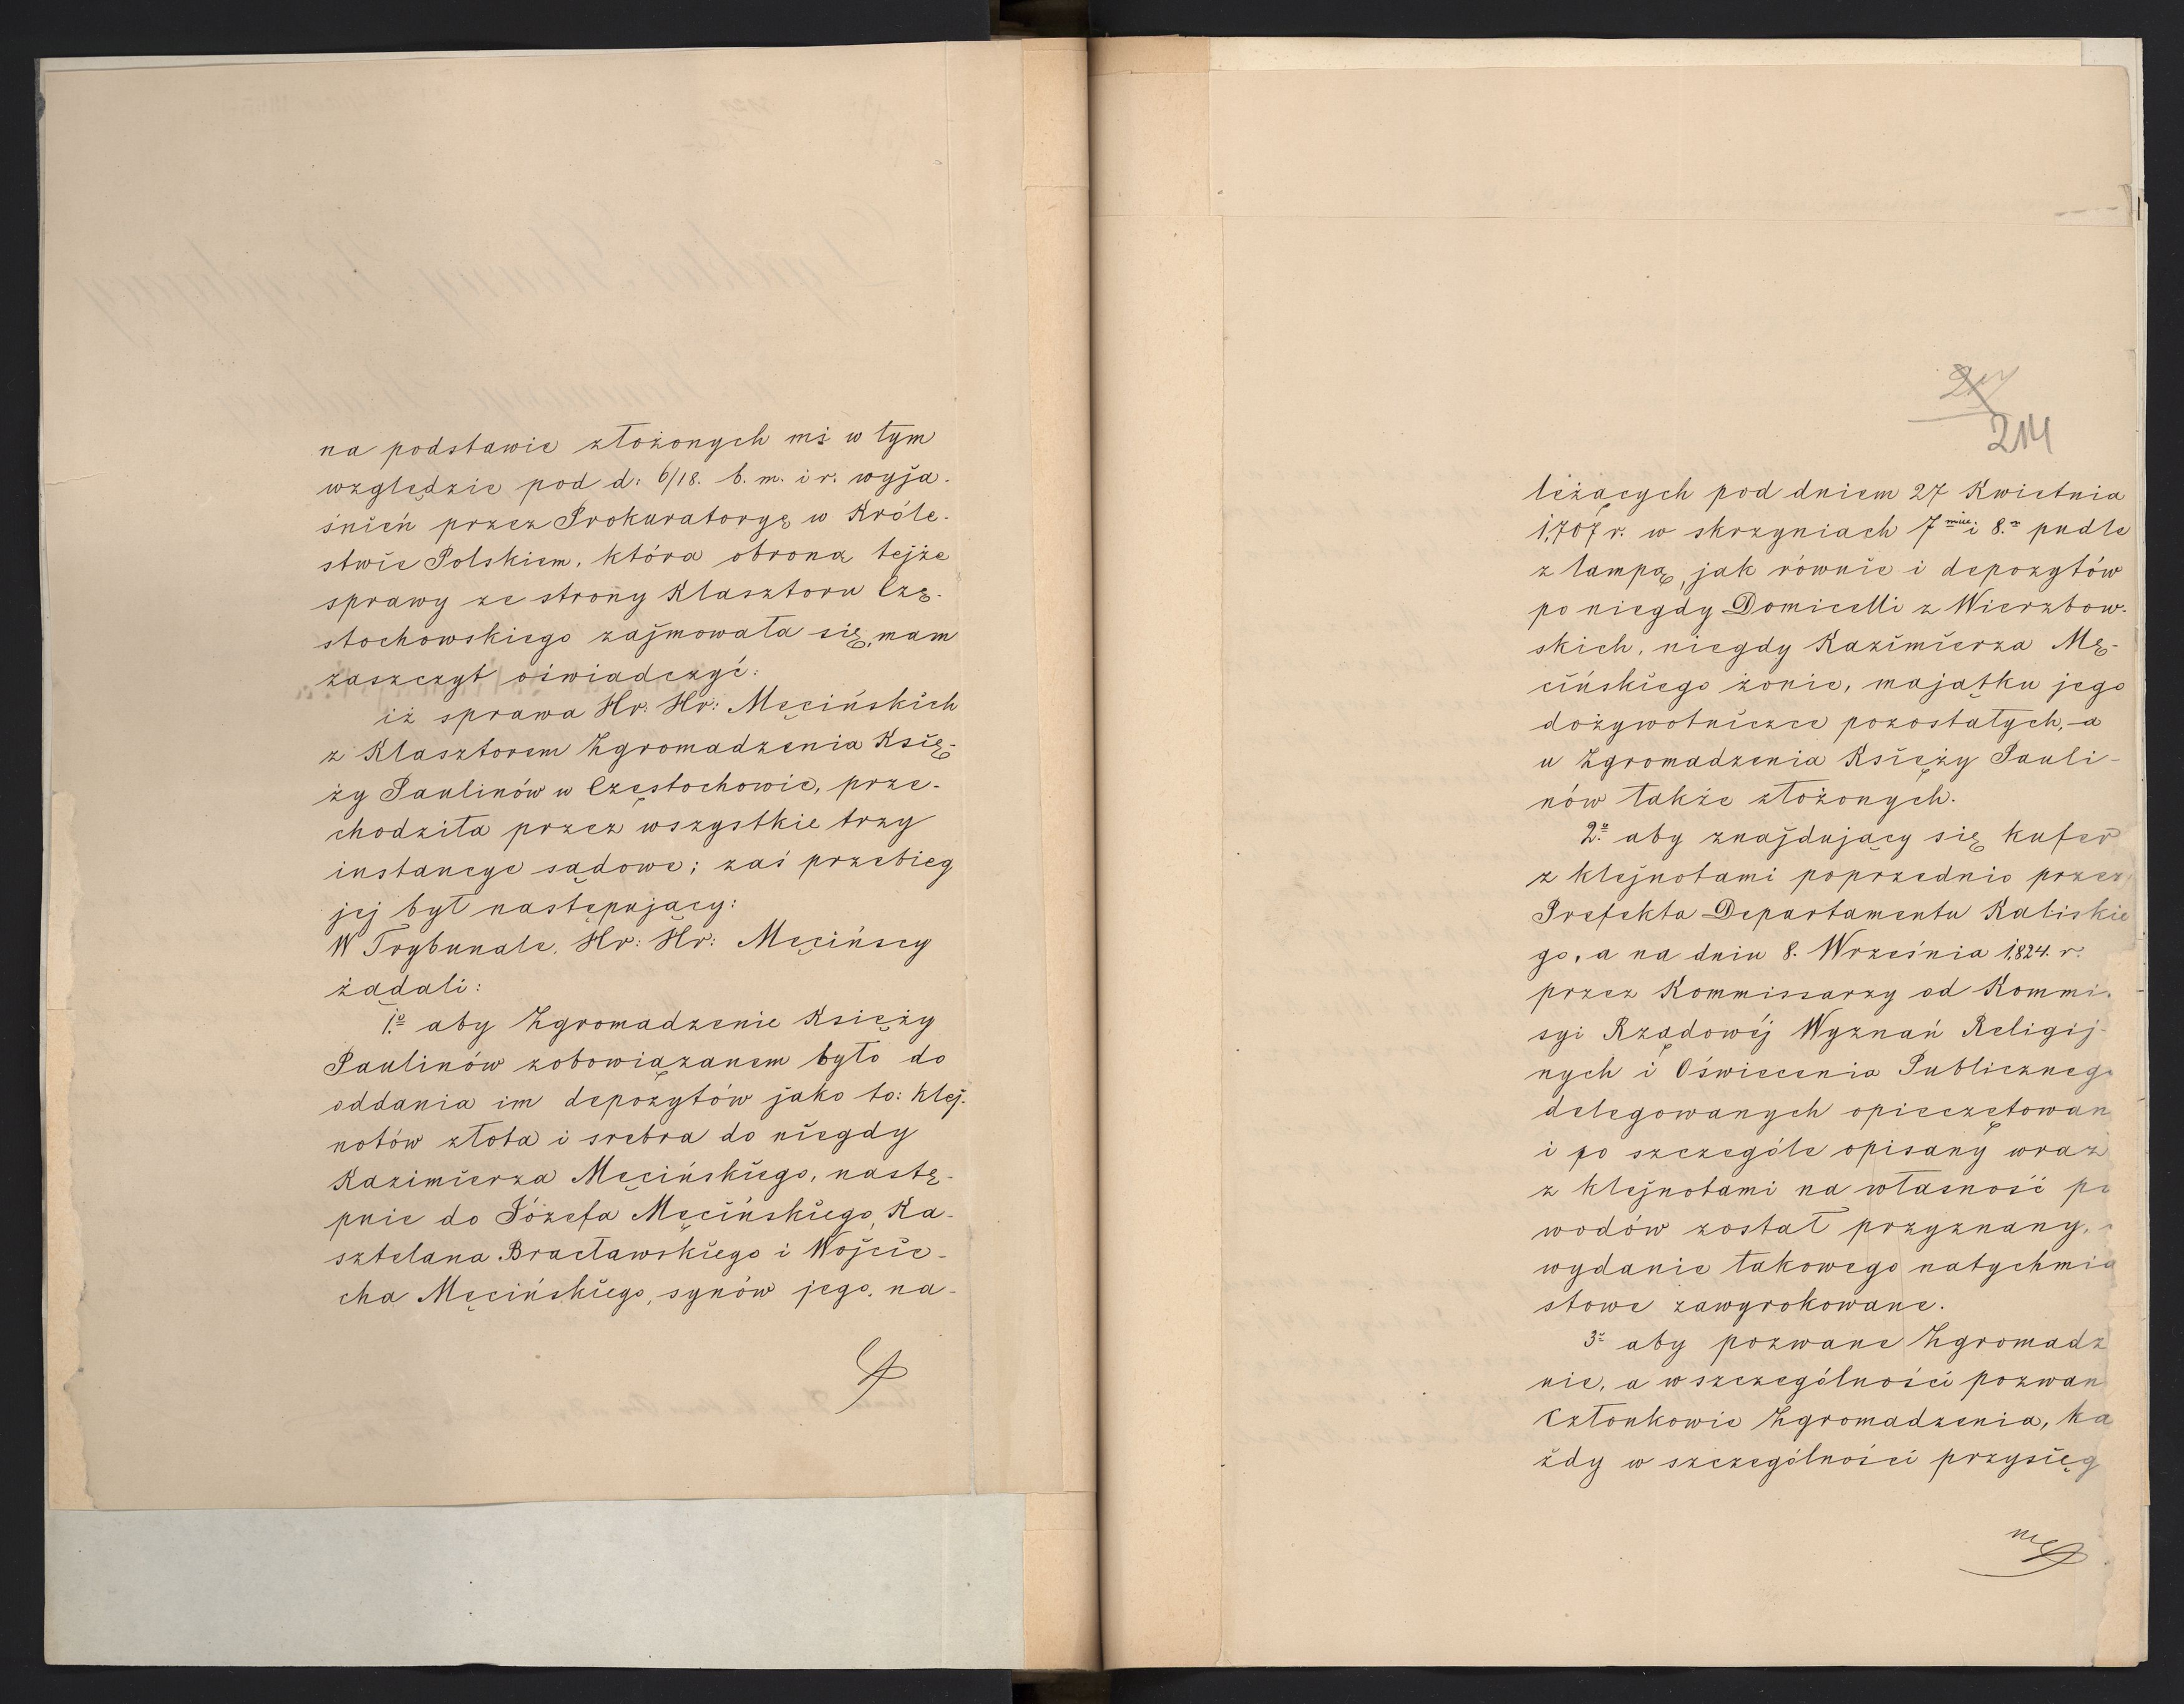 na podstawie złożonych mi w tym
względzie pod d: 6/18. b. m. i r. wyja-
śnień przez Prokuratoryę w Króle-
stwie Polskiem, która obroną tejże
sprawy ze strony Klasztoru Czę-
stochowskiego zajmowała się, mam
zaszczyt oświadczyć:
iż sprawa Hr: Hr: Męcińskich
z Klasztorem Zgromadzenia Księ-
ży Paulinów w Częstochowie, prze-
chodziła przez wszystkie trzy
instancye sądowe; zaś przebieg
jej był następujący:
W Trybunale, Hr: Hr: Męcińscy
żądali:
1.o aby Zgromadzenie Księży
Paulinów zobowiązanem było do
oddania im depozytów jako to: klej-
notów złota i srebra do niegdy
Kazimierza Męcińskiego, nastę-
pnie do Józefa Męcińskiego, Ka-
sztelana Bracławskiego i Wojcie-
cha Męcińskiego, synów jego, na-
214
leżących pod dniem 27 Kwietnia
1,707 r. w skrzyniach 7 miu i 8.m pudle
z lampą, jak równie i depozytów
po niegdy Domicelli z Wierzbow-
skich, niegdy Kazimierza Mę-
cińskiego żonie, majątku jego
dożywotniczce pozostałych, - a
u Zgromadzenia Księży Pauli-
nów także złożonych.
2.o aby znajdujący się kufer
z klejnotami poprzednio przez
Prefekta Departamentu Kaliskie
go, a na dniu 8. Września 1,824. r.
przez Kommissarzy od Kommi-
syi Rządowéj Wyznań Religij-
nych i Oświecenia Publicznego
delegowanych opieczętowan
i po szczególe opisany wraz
z klejnotami na własność po
wodów został przyznany,
wydanie takowego natychmia
stowe zawyrokowane.
3o aby pozwane Zgromadz
nie, a w szczególności pozwan
Członkowie Zgromadzenia, ka
żdy w szczególności przysięg